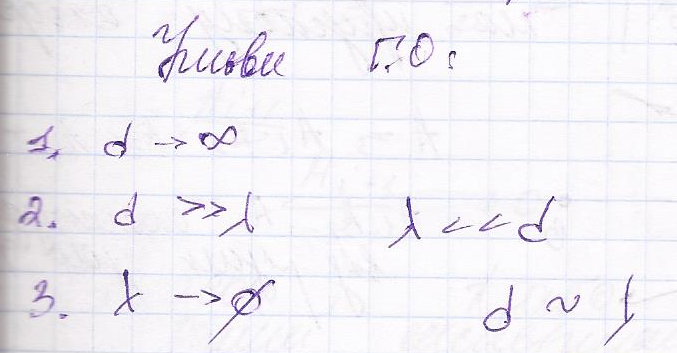 Умови Г.О:
1. d → ∞
2. d >> λ λ << d
3. λ → 0 d ~ 1